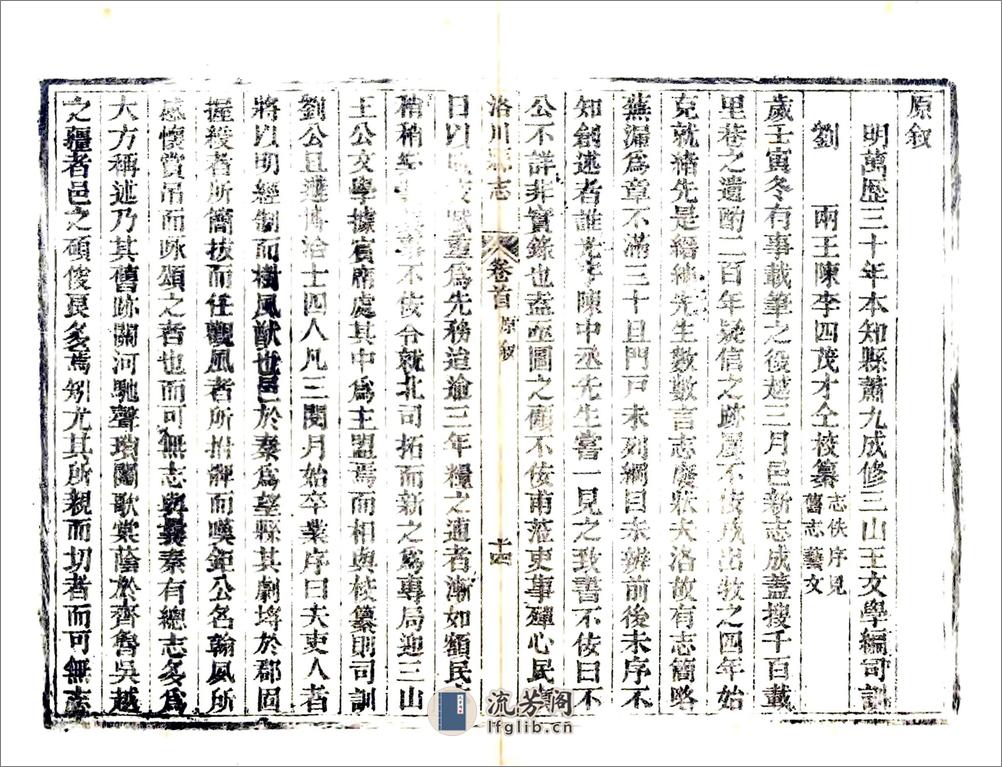 原叙
明萬歷三十年本知縣蕭九成修三山王文學編司訓
劉 兩王陳李四茂才仝校纂志佚序見舊志藝文
歲壬寅冬有事載筆之役越三月邑新志成蓋搜千百載
里巷之遺酌二百年疑信之跡屬不佞戍出牧之四年始
克就緒先是縉紳先生數數言志廢狀夫洛故有志簡略
蕪漏爲章不滿三十且門戸未列綱目未辨前後未序不
知創述者誰 陳中丞先生嘗一見之致誓不佞曰不
公不詳非實錄也蓋亟圖之顧不佞甫蒞吏事殫心民
洛川 志 卷首 原叙 十四
日以 賦重爲先務迨逾三年糧之逋者漸如額民
稍稍 不佞令就北司拓而新之爲專局迎三山
王公文學據賓席處其中爲主盟焉而相與校纂則司訓
劉公且遴博洽士四人凡三閱月始卒業序曰夫吏人者
將以明經制而樹風猷也邑於秦爲望縣其劇埒於郡固
握殺者所簡拔而任觀風者所指 而嘆鉅公名翰風所
感懷賞吊而咏頌之者也而可無志與 秦有總志多爲
大方稱述乃其舊跡關河馳聲瑣闥歌棠蔭於齊魯吳越
之疆者邑之碩俊良多焉矧尤其所親而切者而可無志
流芳阁
lfglib.cn